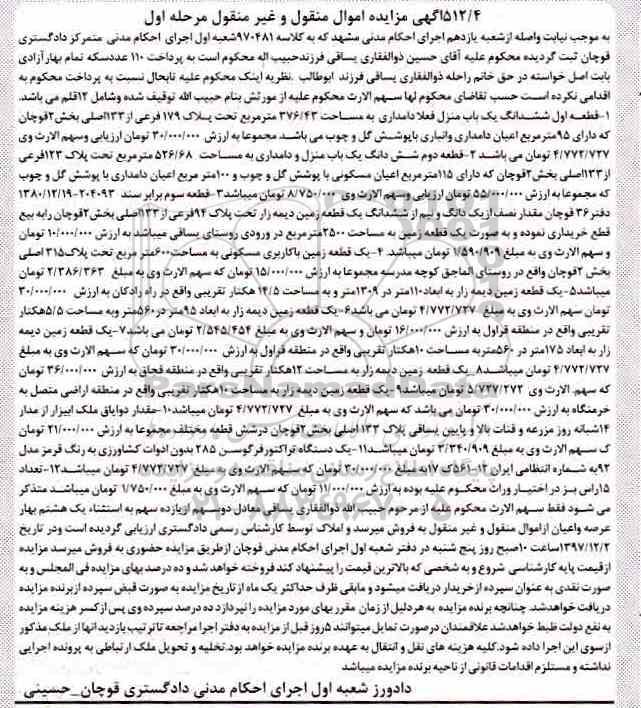 ۵۱۲/۴اگهی مزایده اموال منقول و غیر منقول مرحله اول
به موجب نیابت واصله ازشعبه یازدهم اجرای احکام مدنی مشهد که به کلاسه ۹۷۰۴۸۱شعبه اول اجرای احکام مدنی متمرکز دادگستری
قوچان ثبت گردیده محکوم علیه آقای حسین ذوالفقاری یساقی فرزندحبیب اله محکوم است به پرداخت ۱۱۰ عددسکه تمام بهارآزادی
بابت اصل خواسته در حق خانم راحله ذوالفقاری یساقی فرزند ابوطالب .نظربه اینک محکوم علیه تابحال نسبت به پرداخت محکوم به
اقدامی نکرده است حسب تقاضای محکوم لها سهم الارث محکوم علیه از مورثش بنام حبیب الله توقیف شده وشامل ۱۲قلم می باشد.
۱-قطعه اول ششدانگ یک باب منزل فعلا دامداری به مساحت ۳۷۶/۴۳ مترمربع تحت پلاک ۱۷۹ فرعی از۱۳۳اصلی بخش۲قوچان
که دارای ۹۵مترمربع اعیان دامداری وانباری باپوشش گل و چوب می باشد مجموعا به ارزش ۳۰/۰۰۰/۰۰۰ تومان ارزیابی وسهم الارث وی
۴/۷۷۲/۷۲۷ تومان می باشد ۲-قطعه دوم شش دانگ یک باب منزل و دامداری به مساحت ۵۲۶/۶۸ مترمربع تحت پلاک ۱۲۳فرعی
از۱۳۳اصلی بخش۲قوچان که دارای ۱۱۵مترمربع اعیان مسکونی با پوشش گل و چوب و ۱۰۰متر مربع اعیان دامداری با پوشش گل و چوب
که مجموعا به ارزش ۵۵/۰۰۰/۰۰۰ تومان ارزیابی و سهم الارث وی ۸/۷۵۰/۰۰۰ تومان میباشد۳-قطعه سوم برابر سند ۲۰۴۰۹۳-۱۳۸۰/۱۲/۱۹
دفتر۳۶ قوچان مقدار نصف ازیک دانگ و نیم از ششدانگ یک قطعه زمین دیمه زار تحت پلاک ۹۴فرعی از۱۳۳اصلی بخش۲قوچان رابه بیع
قطع خریداری نموده و به صورت یک قطعه زمین به مساحت ۲۵۰۰مترمربع در ورودی روستای یساقی میباشد به ارزش ۱۰/۰۰۰/۰۰۰ تومان
و سهم الارث وی به مبلغ ۱/۵۹۰/۹۰۹ تومان میباشد. ۴-یک قطعه زمین باکاربری مسکونی به مساحت۶۰۰متر مربع تحت پلاک۳۱۵ اصلی
بخش ۲قوچان واقع در روستای الماجق کوچه مدرسه مجموعا به ارزش ۱۵/۰۰۰/۰۰۰ تومان که سهم الارث وی به مبلغ ۲/۳۸۶/۳۶۳ تومان
میباشد۵-یک قطعه زمین دیمه زار به ابعاد۱۱۰متر در ۱۳۰۹متر و به مساحت ۱۴/۵ هکتار تقریبی واقع در راه رادکان به ارزش ۳۰/۰۰۰/۰۰۰
تومان سهم الارث وی به مبلغ ۴/۷۷۲/۷۲۷ تومان می باشد۶-یک قطعه زمین دیمه زار به ابعاد ۹۵متر در۵۶۰متر وبه مساحت ۵/۵هکتار
تقریبی واقع در منطقه قراول به ارزش ۱۶/۰۰۰/۰۰۰ تومان و سهم الارث وی به مبلغ ۲/۵۴۵/۴۵۴ تومان می باشد۷-یک قطعه زمین دیمه
زار به ابعاد ۱۷۵متر در ۵۶۰متربه مساحت ۱۰هکتار تقریبی واقع در منطقه قراول به ارزش ۳۰/۰۰۰/۰۰۰ تومان که سهم الارث وی به مبلغ
۴/۷۷۲/۷۲۷ تومان میباشد۸_یک قطعه زمین دیمه زار به مساحت ۱۲هکتار تقریبی واقع در منطقه قجاق به ارزش ۳۶/۰۰۰/۰۰۰ تومان
که سهم الارث وی ۵/۷۲۷/۲۷۲ تومان میباشد۹-یک قطعه زمین دیمه زار به مساحت ۱۰هکتار تقریبی واقع در منطقه اراضی متصل به
خرمنگاه به ارزش ۳۰/۰۰۰/۰۰۰ تومان می باشد که سهم الارث وی به مبلغ ۴/۷۷۲/۷۲۷ تومان میباشد۱۰-مقدار دوایاق ملک ابیزار از مدار
۱۴شبانه روز مزرعه و قنات بالا و پایین یساقی پلاک ۱۳۳ اصلی بخش۲قوچان درشش قطعه مختلف مجموعا به ارزش ۲۱/۰۰۰/۰۰۰ تومان
ک سهم الارث وی به مبلغ ۳/۳۴۰/۹۰۹ تومان میباشد۱۱-یک دستگاه تراکتورفرگوسن ۲۸۵ بدون ادوات کشاورزی به رنگ قرمز مدل
۹۲به شماره انتظامی ایران ۱۲-۵۶۱ک ۱۷به مبلغ ۳۰/۰۰۰/۰۰۰ تومان که سهم الارث وی به مبلغ ۴/۷۷۲/۷۲۷ تومان میباشد۱۲-تعداد
۱۵راس بز در اختیار وراث محکوم علیه بوده به ارزش ۱۱/۰۰۰/۰۰۰ تومان که سهم الارث وی به مبلغ ۱/۷۵۰/۰۰۰ تومان میباشد متذکر
می شود فقط سهم الارث محکوم علیه از مرحوم حبیب الله ذوالفقاری یساقی معادل دوسهم ازیازده سهم به استثناء یک هشتم بهار
عرصه واعیان ازاموال منقول و غیر منقول به فروش میرسد و املاک توسط کارشناس رسمی دادگستری ارزیابی گردیده است ودر تاریخ
۱۳۹۷/۱۲/۲ساعت ۱۰صبح روز پنج شنبه در دفتر شعبه اول اجرای احکام مدنی قوچان ازطریق مزایده حضوری به فروش میرسد مزایده
ازقیمت پایه کارشناسی شروع و به شخصی که بالاترین قیمت را پیشنهاد کند فروخته خواهد شد و ده درصد بهای مزایده فی المجلس و به
صورت نقدی به عنوان سپرده ازخریدار دریافت میشود و مابقی ظرف حداکثر یک ماه از تاریخ مزایده به صورت قبض سپرده ازبرنده مزایده
دریافت خواهدشد. چنانچه برنده مزایده به هردلیل از زمان مقرر بهای مورد مزایده را نپردازد ده درصد سپرده وی پس از کسر هزینه مزایده
به نفع دولت ظبط خواهدشد علاقمندان درصورت تمایل میتوانند ۵روز قبل از مزایده به دفتر اجرا مراجعه تاترتیب بازدید انها از ملک مذکور
ازسوی این اجرا داده شود.کلیه هزینه های نقل و انتقال به عهده برنده مزایده خواهد بود.تخلیه و تحویل ملک ارتباطی به پرونده اجرایی
نداشته و مستلزم اقدامات قانونی از ناحیه برنده مزایده میباشد
دادورز شعبه اول اجرای احکام مدنی دادگستری قوچان_حسینی